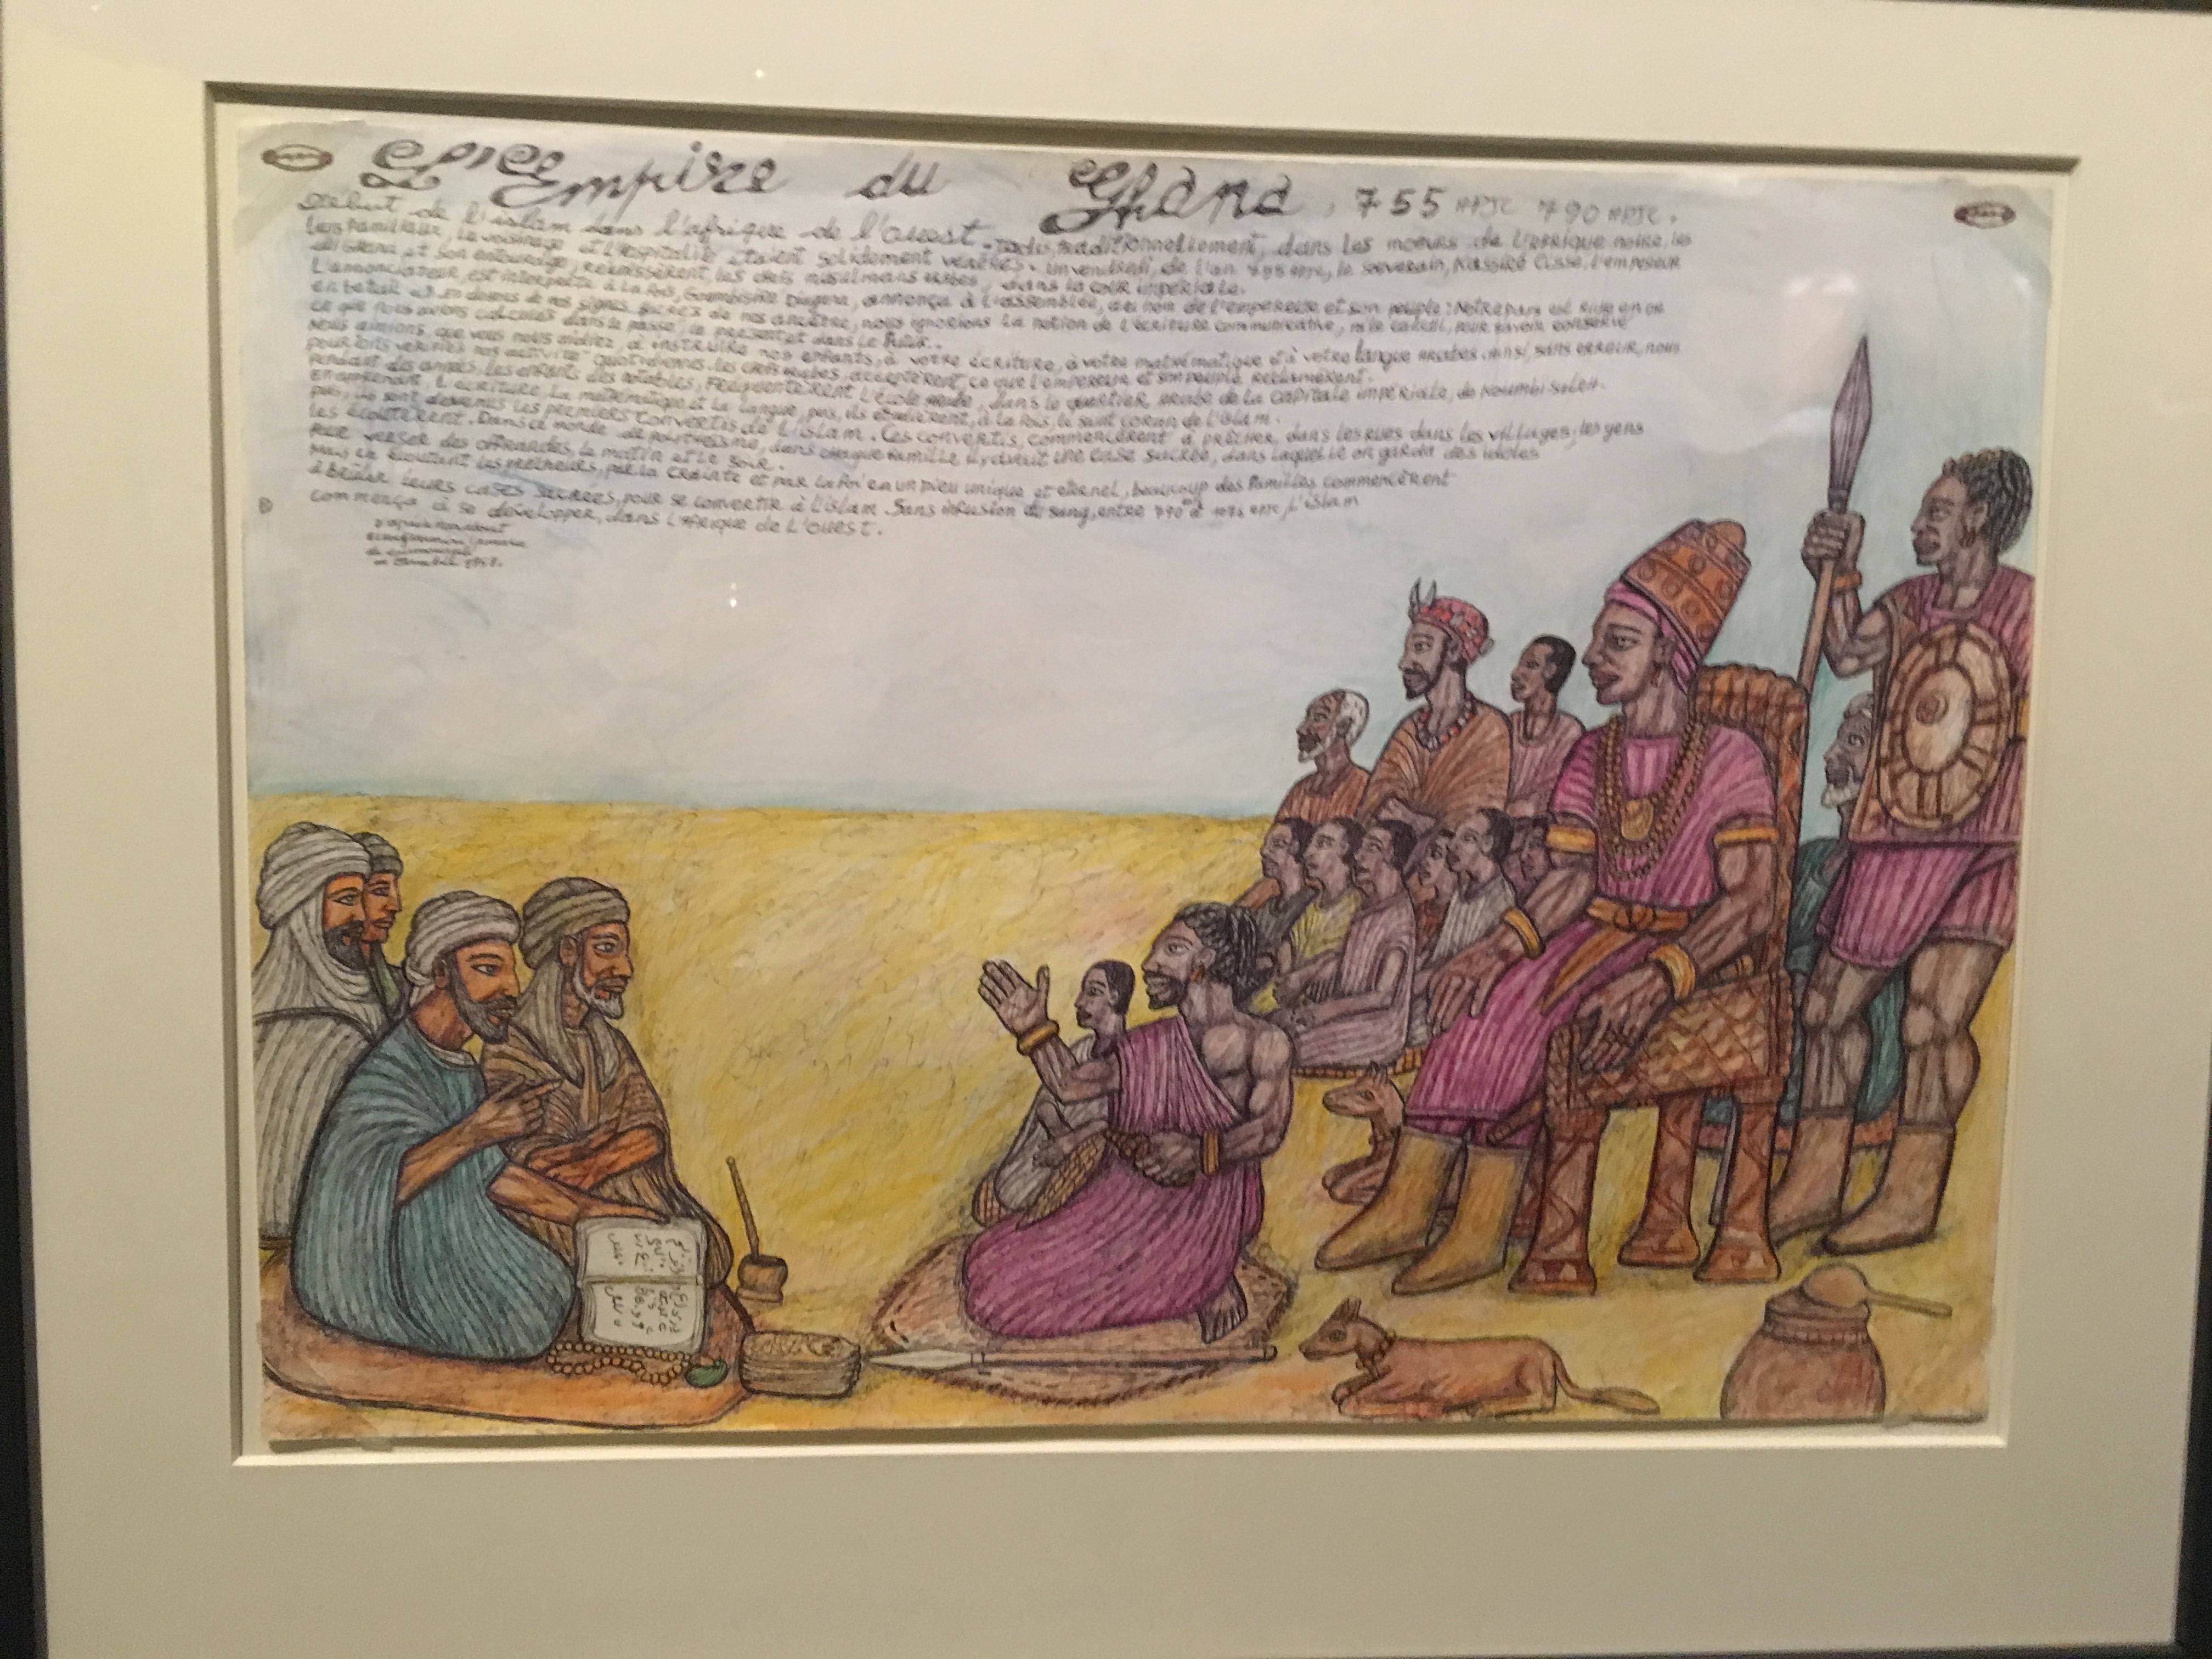 Empire du Ghana, 755 APJC 790 APJC.
Début de l'islam dans l'afrique de l'ouest. traditionnellement, dans les moeurs de l'afrique noire, les
liens familiaux, le voisinage et l'hospitalité étaient solidement vénérés. un vendredi, de l'an 755 APJC, le souverain, Kassiré Cissé, l'empereur
du Ghana et son entourage, réunissèrent, les chefs musulmans arabes, dans la cour impériale.
L'annonciateur, est interprète à la fois, Goumbisiré Diagora, annonça à l'assemblée, au nom de l'empereur et son peuple: Notre pays est riche en or
en betail en dessous de nos signes sacrés de nos ancêtre, nous ignorions la notion de l'écriture communicative, ni le calcul, pour savoir conservé
ce que nous avions calculés dans le passé, le présent et dans le futur.
Nous aimions, que vous nous aidiez, à instruire nos enfants, à votre écriture, à votre mathématique et à votre langue arabes ainsi, sans erreur, nous
pourions verifiés nos activité quotidiennes. les chefs arabes, acceptèrent, ce que l'empereur et son peuple reclamèrent.
Pendant des années, les enfants des notables, fréquentèrent l'école arabe, dans le quartier arabe de la capitale impériale, de Koumbi Saleh.
En apprenant l'écriture, la mathématique et la langue, puis, ils étudièrent, à la fois, le saint coran de l'islam.
puis, ils sont devenus les premiers convertis de l'islam. Ces convertis, commencèrent à prêcher, dans les rues dans les villages; les gens
les écoutèrent. Dans ce monde de polythéisme, dans chaque famille il y avait une case sacrée, dans laquelle on garda des idoles
Pour verser des offrandes, le matin et le soir.
Mais en écoutant les prêcheurs, par la crainte et par la foi en un Dieu unique et eternel, beaucoup des familles commencèrent
à brûler leurs cases sacrées, pour se convertir à l'islam. Sans infusion du sang, entre 790 à 1076 APJC, l'islam
commença à se développer, dans l'afrique de l'ouest.